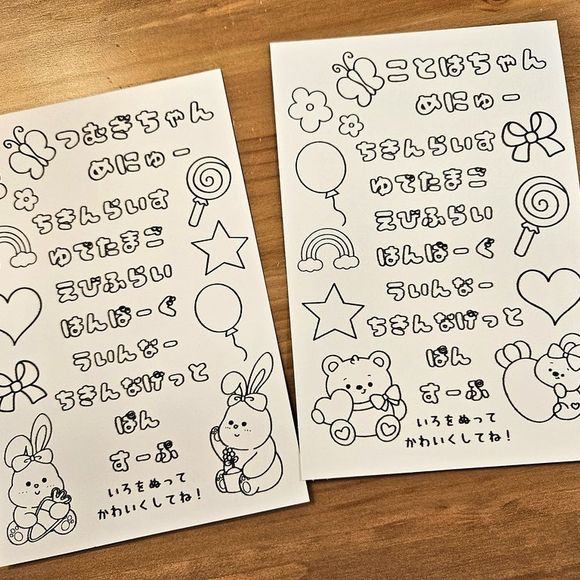 つむぎちゃん
めにゅー
ちきんらいす
ゆでたまご
えびふらい
はんばーぐ
ういんなー
ちきんなげっと
ぱん
すーぷ
いろをぬって
かわいくしてね！
ことはちゃん
めにゅー
ちきんらいす
ゆでたまご
えびふらい
はんばーぐ
ういんなー
ちきんなげっと
ぱん
すーぷ
いろをぬって
かわいくしてね！